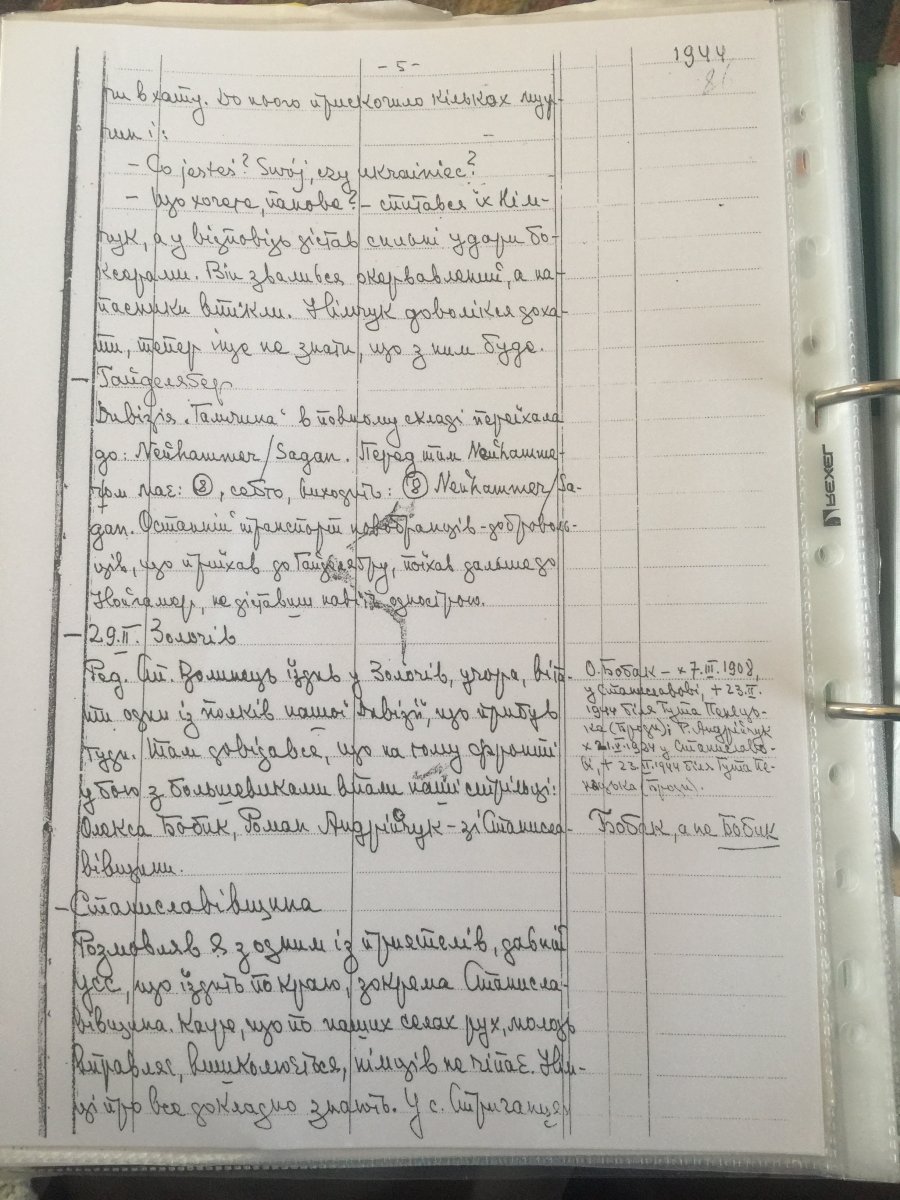 - 5 -
1944
ти в хату. До нього прискочило кількох муж-
чин і:
– Co jesteś? Swój, czy ukrainiec?
– Що хочете, панове? – спитався їх Нім-
чук, а у відповідь дістав сильні удари бо-
ксерами. Він звалився окервавлений, а на-
пасники втікли. Німчук доволікся до ха-
ти, тепер іще не знати, що з ним буде.
– Гайделяґер
Дивізія „Галичина" в повному складі переїхала
до: Neuhammer/Sagan. Перед тим Neuhamme-
ром має: ⑧, себто, виходить: ⑧ Neuhammer/Sa-
gan. Останній транспорт новобранців-доброволь-
ців, що приїхав до Гайделяґру, поїхав дальше до
Нойгамер, не діставши навіть однострою.
– 29.II. Золочів
Ред. Ст. Волинець їздив у Золочів, учора, віта-
ти один із полків нашої Дивізії, що прибув
туди. Там довідався, що на тому фронті
у бою з большевиками впали наші стрільці:
Олекса Бобик, Роман Андрійчук – зі Станисла-
вівщини.
О. Бобак – × 7.III.1908,
у Станиславові, + 23.II.
1944 біля Гута Пеняць-
ка (Броди); Р. Андрійчук
у Станиславо-
ві, + 23.II.1944 біля Гута Пе-
няцька (Броди).
Бобак, а не Бобик
– Станиславівщина
Розмовляв я з одним із приятелів, давній
УСС, що їздить по краю, зокрема Станисла-
вівщина. Каже, що по наших селах рух, молодь
вправляє, вишколюється, німців не чіпає. Нім-
ці про все докладно знають. У с. Стриганця
REXEL